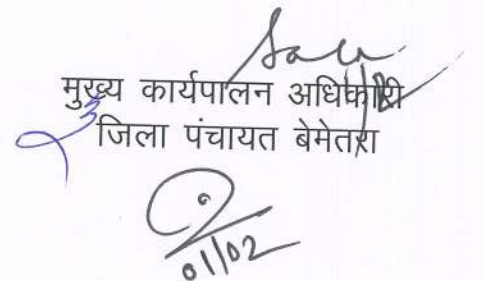 मुख्य कार्यपालन अधिकारी
जिला पंचायत बेमेतरा
01/02